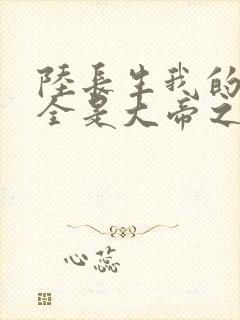 陸長生我的
全是大帝之
心蕊